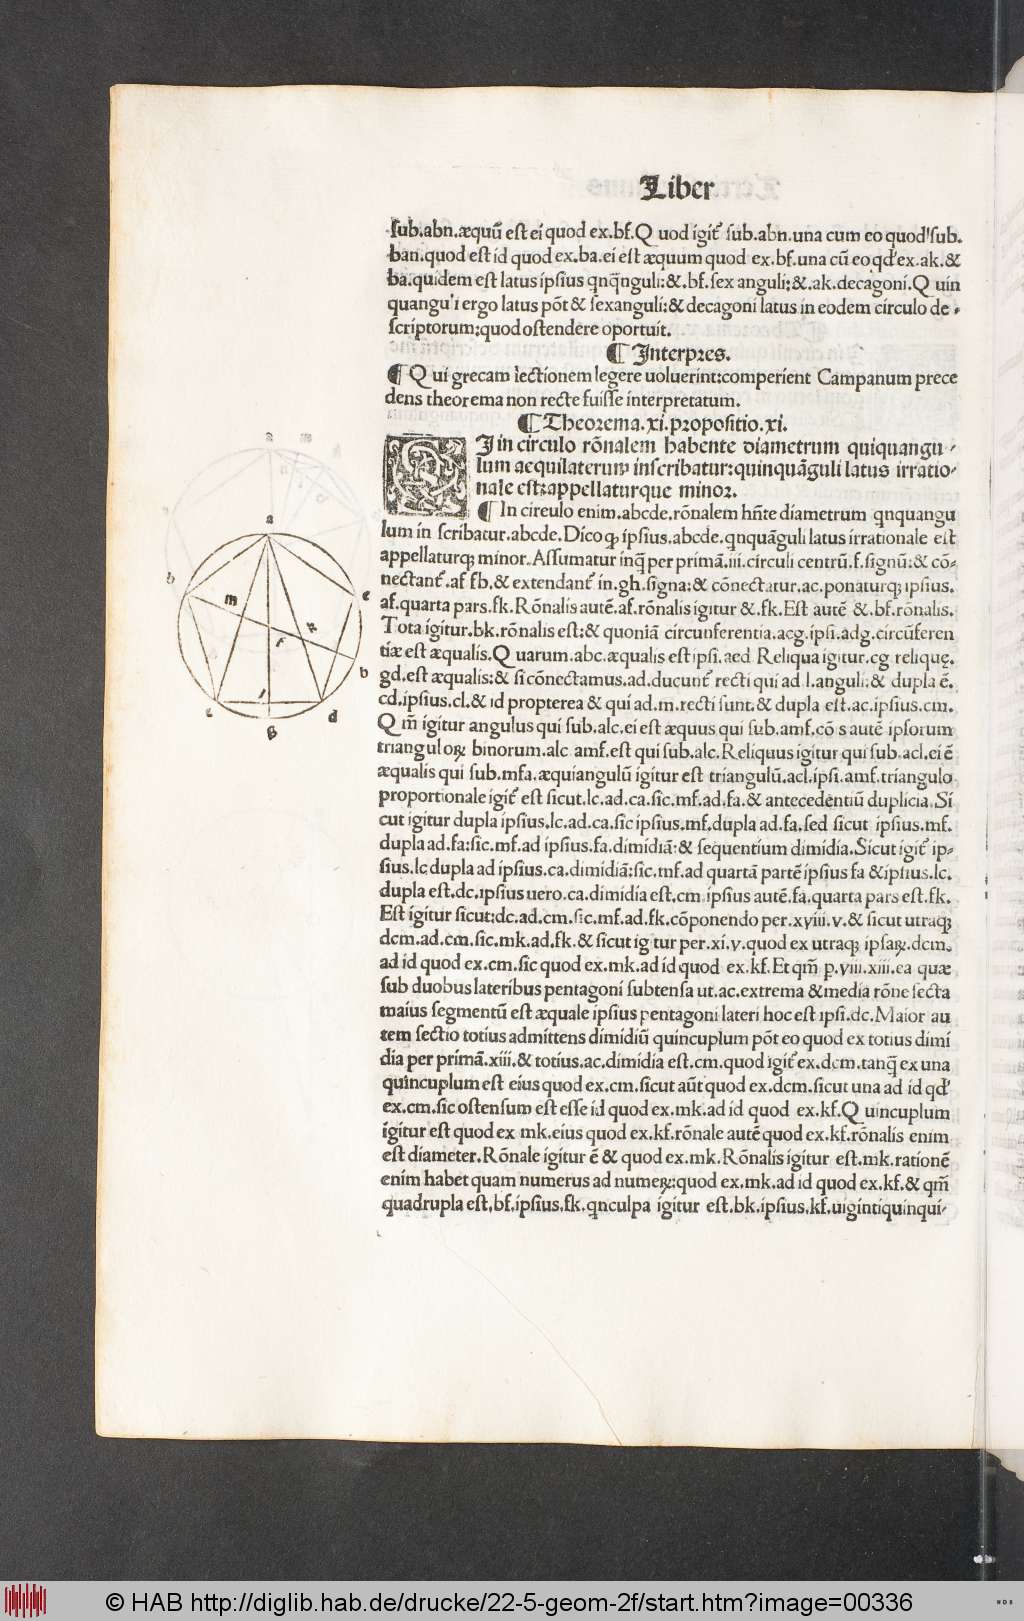 Liber
sub.abn.æquũ est ei quod ex.bf.Quod igit᷑ sub.abn.una cum eo quod'sub.
ban.quod est id quod ex.ba.ei est æquum quod ex.bf.una cũ eo qd' ex.ak.&
ba.quidem est latus ipsius qnq̃nguli:&.bf.sex anguli:&.ak.decagoni.Quin
quangu'i ergo latus põt & sexanguli:& decagoni latus in eodem circulo de-
scriptorum:quod ostendere oportuit.
¶ Interpres.
¶ Qui grecam lectionem legere uoluerint:comperient Campanum prece
dens theorema non recte fuisse interpretatum.
¶ Theorema.xi.propositio.xi.
SI in circulo rõnalem habente diametrum quiquangu-
lum aequilaterum inscribatur:quinquãguli latus irratio-
nale est:appellaturque minor.
¶ In circulo enim.abcde.rõnalem hñte diametrum qnquangu
lum in scribatur.abcde.Dico ꝙ ipsius.abcde.qnquãguli latus irrationale est
appellaturqꝫ minor.Assumatur inq̃ per primã.iii.circuli centrũ.f.signũ:& cõ-
nectant᷑.af fb.& extendant᷑ in.gh.signa:& cõnectatur.ac.ponaturqꝫ ipsius.
af.quarta pars.fk.Rõnalis autẽ.af.rõnalis igitur &.fk.Est autẽ &.bf.rõnalis.
Tota igitur.bk.rõnalis est:& quoniã circunferentia.acg.ipsi.adg.circũferen
tiæ est æqualis.Quarum.abc.æqualis est ipsi.aed Reliqua igitur.cg reliquę.
gd.est æqualis:& si cõnectamus.ad.ducunt᷑ recti qui ad l.anguli:& dupla ẽ.
cd.ipsius.cl.& id propterea & qui ad.m.recti sunt.& dupla est.ac.ipsius.cm.
Qm̃ igitur angulus qui sub.alc.ei est æquus qui sub.amf.cõ s autẽ ipsorum
trianguloꝝ binorum.alc amf.est qui sub.alc.Reliquus igitur qui sub.acl.ei ẽ
æqualis qui sub.mfa.æquiangulũ igitur est triangulũ.acl.ipsi.amf.triangulo
proportionale igit᷑ est sicut.lc.ad.ca.sic.mf.ad.fa.& antecedentiũ duplicia.Si
cut igitur dupla ipsius.lc.ad.ca.sic ipsius.mf.dupla ad.fa.sed sicut ipsius.mf.
dupla ad.fa:sic.mf.ad ipsius.fa.dimidiã:& sequentium dimidia.Sicut igit᷑ ip-
sius.lc dupla ad ipsius.ca.dimidiã:sic.mf.ad quartã partẽ ipsius fa & ipsius.lc.
dupla est.dc.ipsius uero.ca.dimidia est.cm ipsius autẽ.fa.quarta pars est.fk.
Est igitur sicut:dc.ad.cm.sic.mf.ad.fk.cõponendo per.xviii.v.& sicut utraqꝫ
dcm.ad.cm.sic.mk.ad.fk.& sicut ig tur per.xi.v.quod ex utraqꝫ ipsaꝝ.dcm.
ad id quod ex.cm.sic quod ex.mk.ad id quod ex.kf.Et qm̃ p.viii.xiii.ea quæ
sub duobus lateribus pentagoni subtensa ut.ac.extrema & media rõne secta
maius segmentũ est æquale ipsius pentagoni lateri hoc est ipsi.dc.Maior au
tem sectio totius admittens dimidiũ quincuplum põt eo quod ex totius dimi
dia per primã.xiii.& totius.ac.dimidia est.cm.quod igit᷑ ex.dcm.tanq̃ ex una
quincuplum est eius quod ex.cm.sicut aũt quod ex.dcm.sicut una ad id qd'
ex.cm.sic ostensum est esse id quod ex.mk.ad id quod ex.kf.Quincuplum
igitur est quod ex mk.eius quod ex.kf.rõnale autẽ quod ex.kf.rõnalis enim
est diameter.Rõnale igitur ẽ & quod ex.mk.Rõnalis igitur est.mk.rationẽ
enim habet quam numerus ad numeꝝ:quod ex.mk.ad id quod ex.kf.& qm̃
quadrupla est.bf.ipsius.fk.qnculpa igitur est.bk.ipsius.kf.uigintiquinqui-
a
b
m
e
k
f
h
l
c
d
g
© HAB http://diglib.hab.de/drucke/22-5-geom-2f/start.htm?image=00336